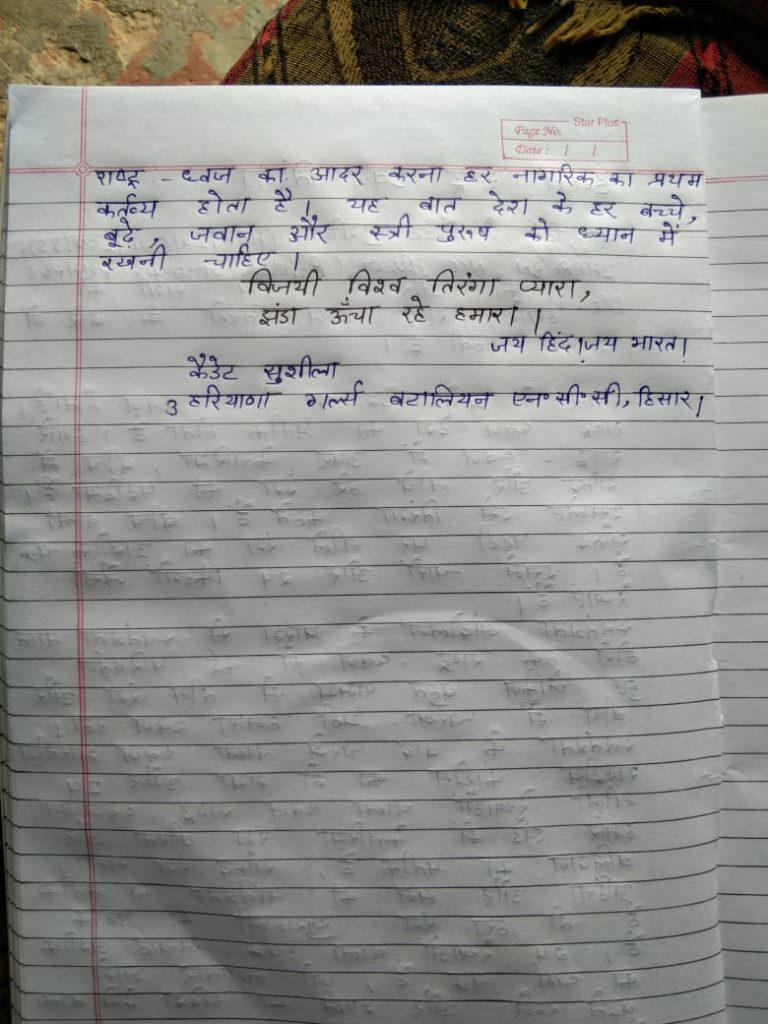 Star Plus
Page No.
Date: / /
राष्ट्र - ध्वज का आदर करना हर नागरिक का प्रथम
कर्तव्य होता है। यह बात देश के हर बच्चे,
बूढ़े, जवान और स्त्री पुरुष को ध्यान में
रखनी चाहिए।
विजयी विश्व तिरंगा प्यारा,
झंडा ऊँचा रहे हमारा।
जय हिंद। जय भारत।
कैडेट सुशीला
3 हरियाणा गर्ल्स बटालियन एन॰ सी॰ सी, हिसार।